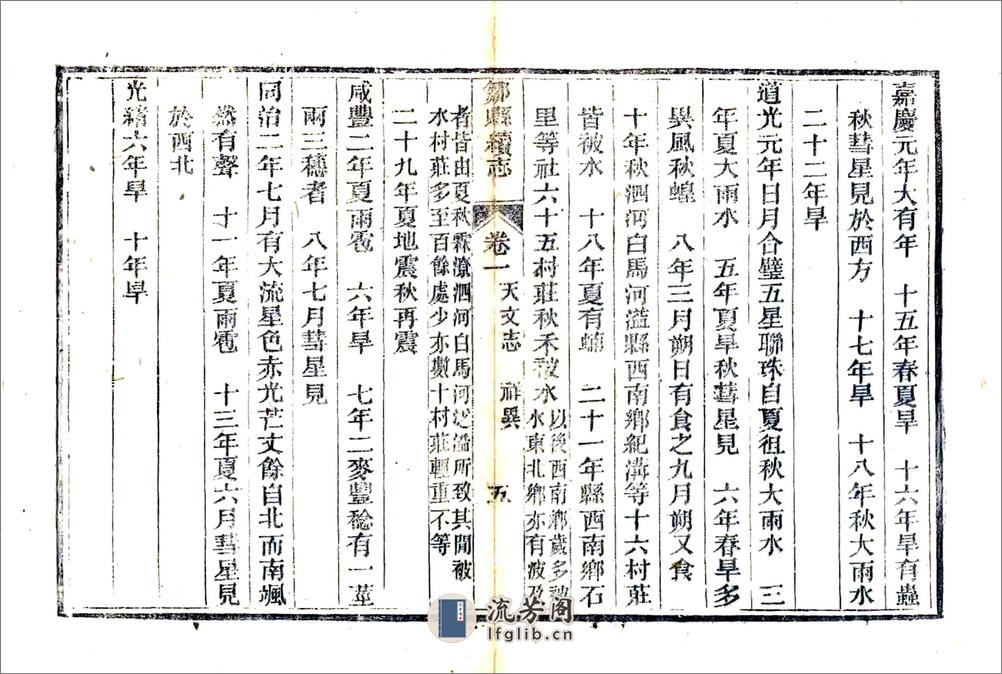 嘉慶元年大有年　十五年春夏旱　十六年旱有蟲
秋彗星見於西方　十七年旱　十八年秋大雨水
二十二年旱
道光元年日月合璧五星聯珠自夏徂秋大雨水　三
年夏大雨水　五年夏旱秋彗星見　六年春旱多
異風秋蝗　八年三月朔日有食之九月朔又食
十年秋泗河白馬河溢縣西南鄉紀溝等十六村莊
皆被水　十八年夏有蝻　二十一年縣西南鄉石
里等社六十五村莊秋禾被水以後西南鄉歲多被
水東北鄉亦有波及
鄒縣續志　卷一　天文志　祥異　五
者皆由夏秋霖潦泗河白馬河泛濫所致其間被
水村莊多至百餘處少亦數十村莊輕重不等
二十九年夏地震秋再震
咸豐二年夏雨雹　六年旱　七年二麥豐稔有一莖
兩三穗者　八年七月彗星見
同治二年七月有大流星色赤光芒丈餘自北而南颯
然有聲　十一年夏雨雹　十三年夏六月彗星見
於西北
光緒六年旱　十年旱
流芳阁
lfglib.cn